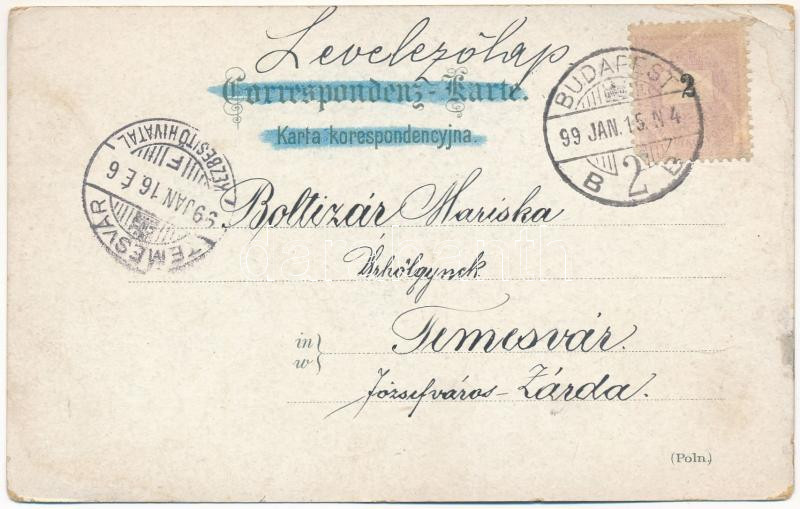 Levelezőlap.
Correspondenz-Karte.
Karta korespondencyjna.
2
BUDAPEST
99 JAN.15.N 4
B 2 B
KÉZBESITŐ HIVATAL
F
99 JAN 16.É 6
TEMESVÁR
Boltizár Mariska
Úrhölgynek
in
w
Temesvár.
Józsefváros-Zárda.
(Poln.)